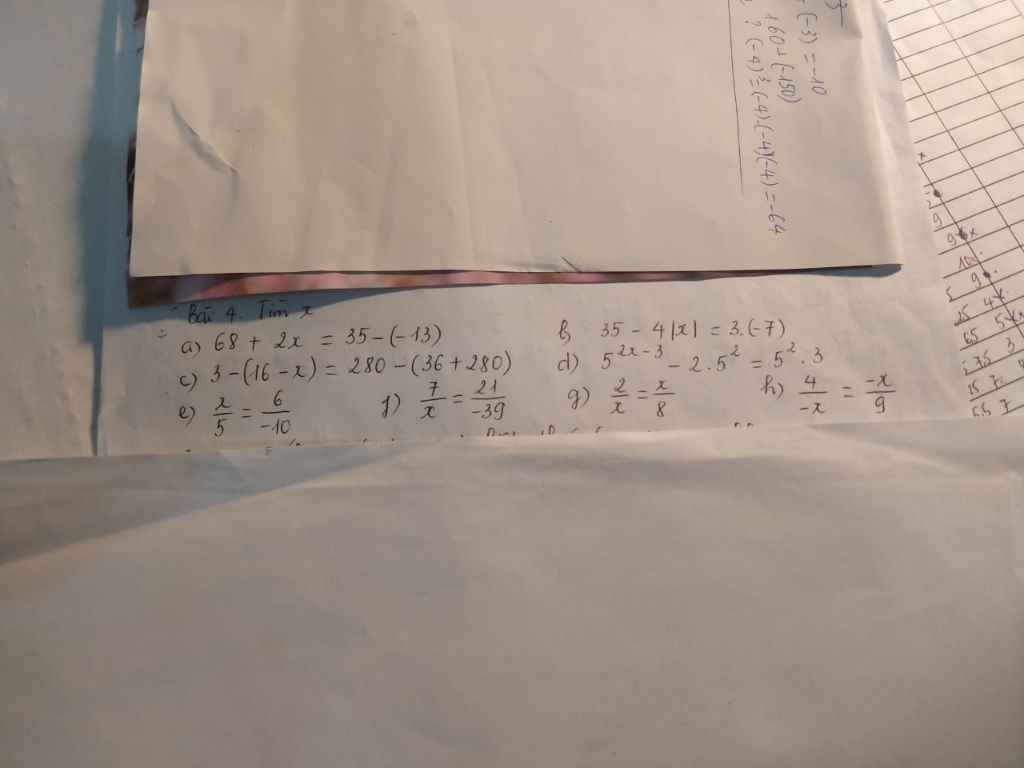 (-3) = -10
160 + (-150)
? (-4)³ = (-4).(-4)(-4) = -64
Bài 4. Tìm x
a) 68 + 2x = 35 - (-13)
b) 35 - 4|x| = 3.(-7)
c) 3 - (16 - x) = 280 - (36 + 280)
d) 5^{2x-3} - 2.5² = 5².3
e) x/5 = 6/-10
f) 7/x = 21/-39
g) 2/x = x/8
h) 4/-x = -x/9